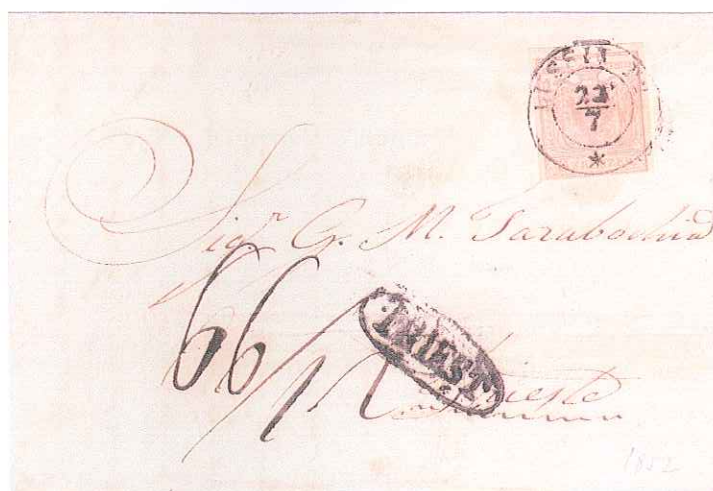 22
7
*
Sigr G. M. Tarabochia
66
TRIEST
Trieste
1852